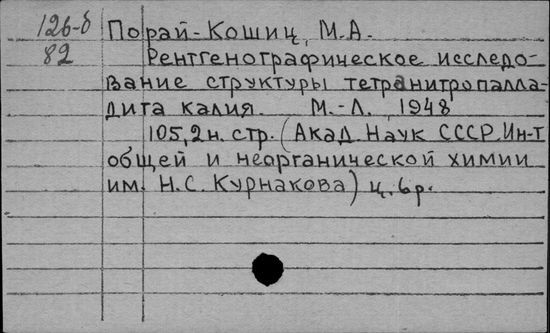 126-б
82
Порай-Кошиц, М.А.
Рентгенографическое исследо-
вание структуры тетранитропалла-
дита калия. М.-Л., 1948
105, 2 н. стр. (Акад. Наук СССР. Ин-т
общей и неорганической химии
им. Н.С. Курнакова) ц. 6 р.